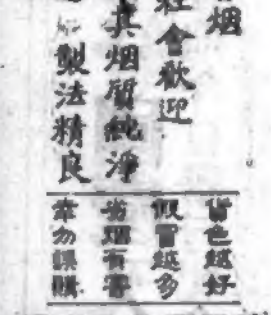 烟
社會歡迎
其烟質純淨
製法精良
貨色越好
假冒越多
劣烟有害
幸勿誤購